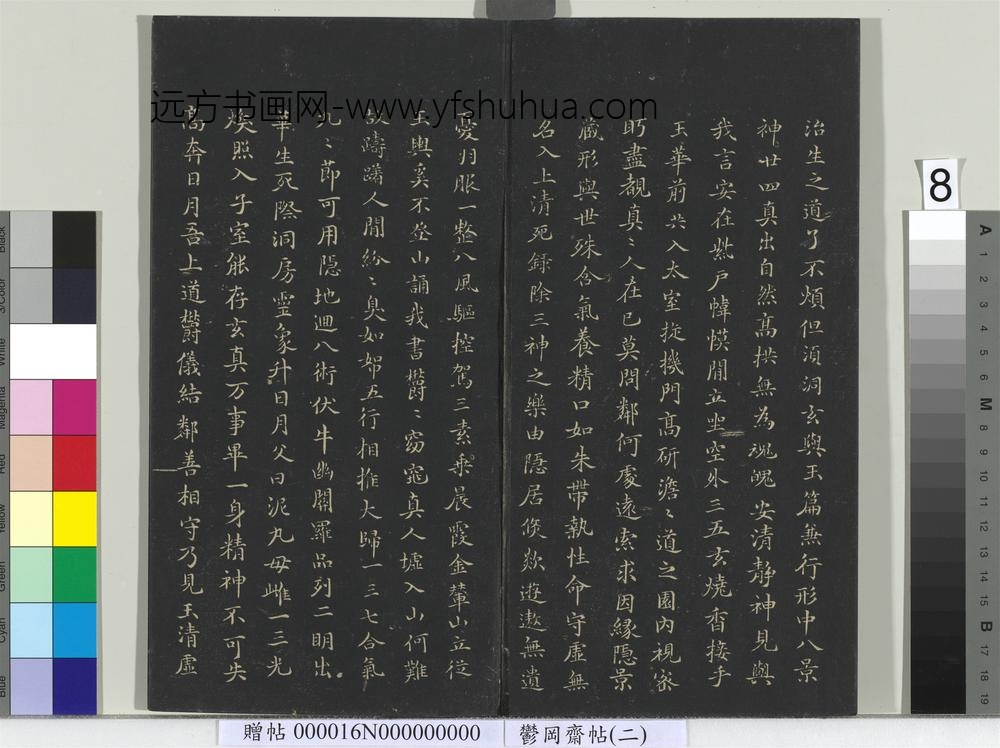 治生之道了不煩但須洞玄與玉篇無行形中八景
神廿四真出自然高拱無為魂魄安清靜神見與
我言安在紫戶幃幙閒立坐室外三五玄燒香接手
玉華前共入太室璇機門高研澹〻道之園內視密
眄盡覩真〻人在己莫問鄰何處遠索求因緣隱景
藏形與世殊含氣養精口如朱帶執性命守虛無
名入上清死錄除三神之樂由隱居倏欻遊遨無遺
憂羽服一整八風驅控駕三素乘晨霞金輦正立從
玉輿奚不登山誦我書鬱〻窈窕真人墟入山何難
故躊躇人間紛〻臭如帤五行相推大歸一三七合氣
九〻節可用隱地迴八術伏牛幽闕羅品列二明出
華生死際洞房靈象升日月父曰泥丸母雌一三光
煥照入子室能存玄真万事畢一身精神不可失
高奔日月吾上道鬱儀結鄰善相守乃見玉清虛
远方书画网-www.yfshuhua.com
8
贈帖 000016N000000000
鬱岡齋帖(二)
Black
3/Color
White
Magenta
Red
Yellow
Green
Cyan
Blue
A
1
2
3
4
5
6
M
8
9
10
11
12
13
14
15
B
17
18
19